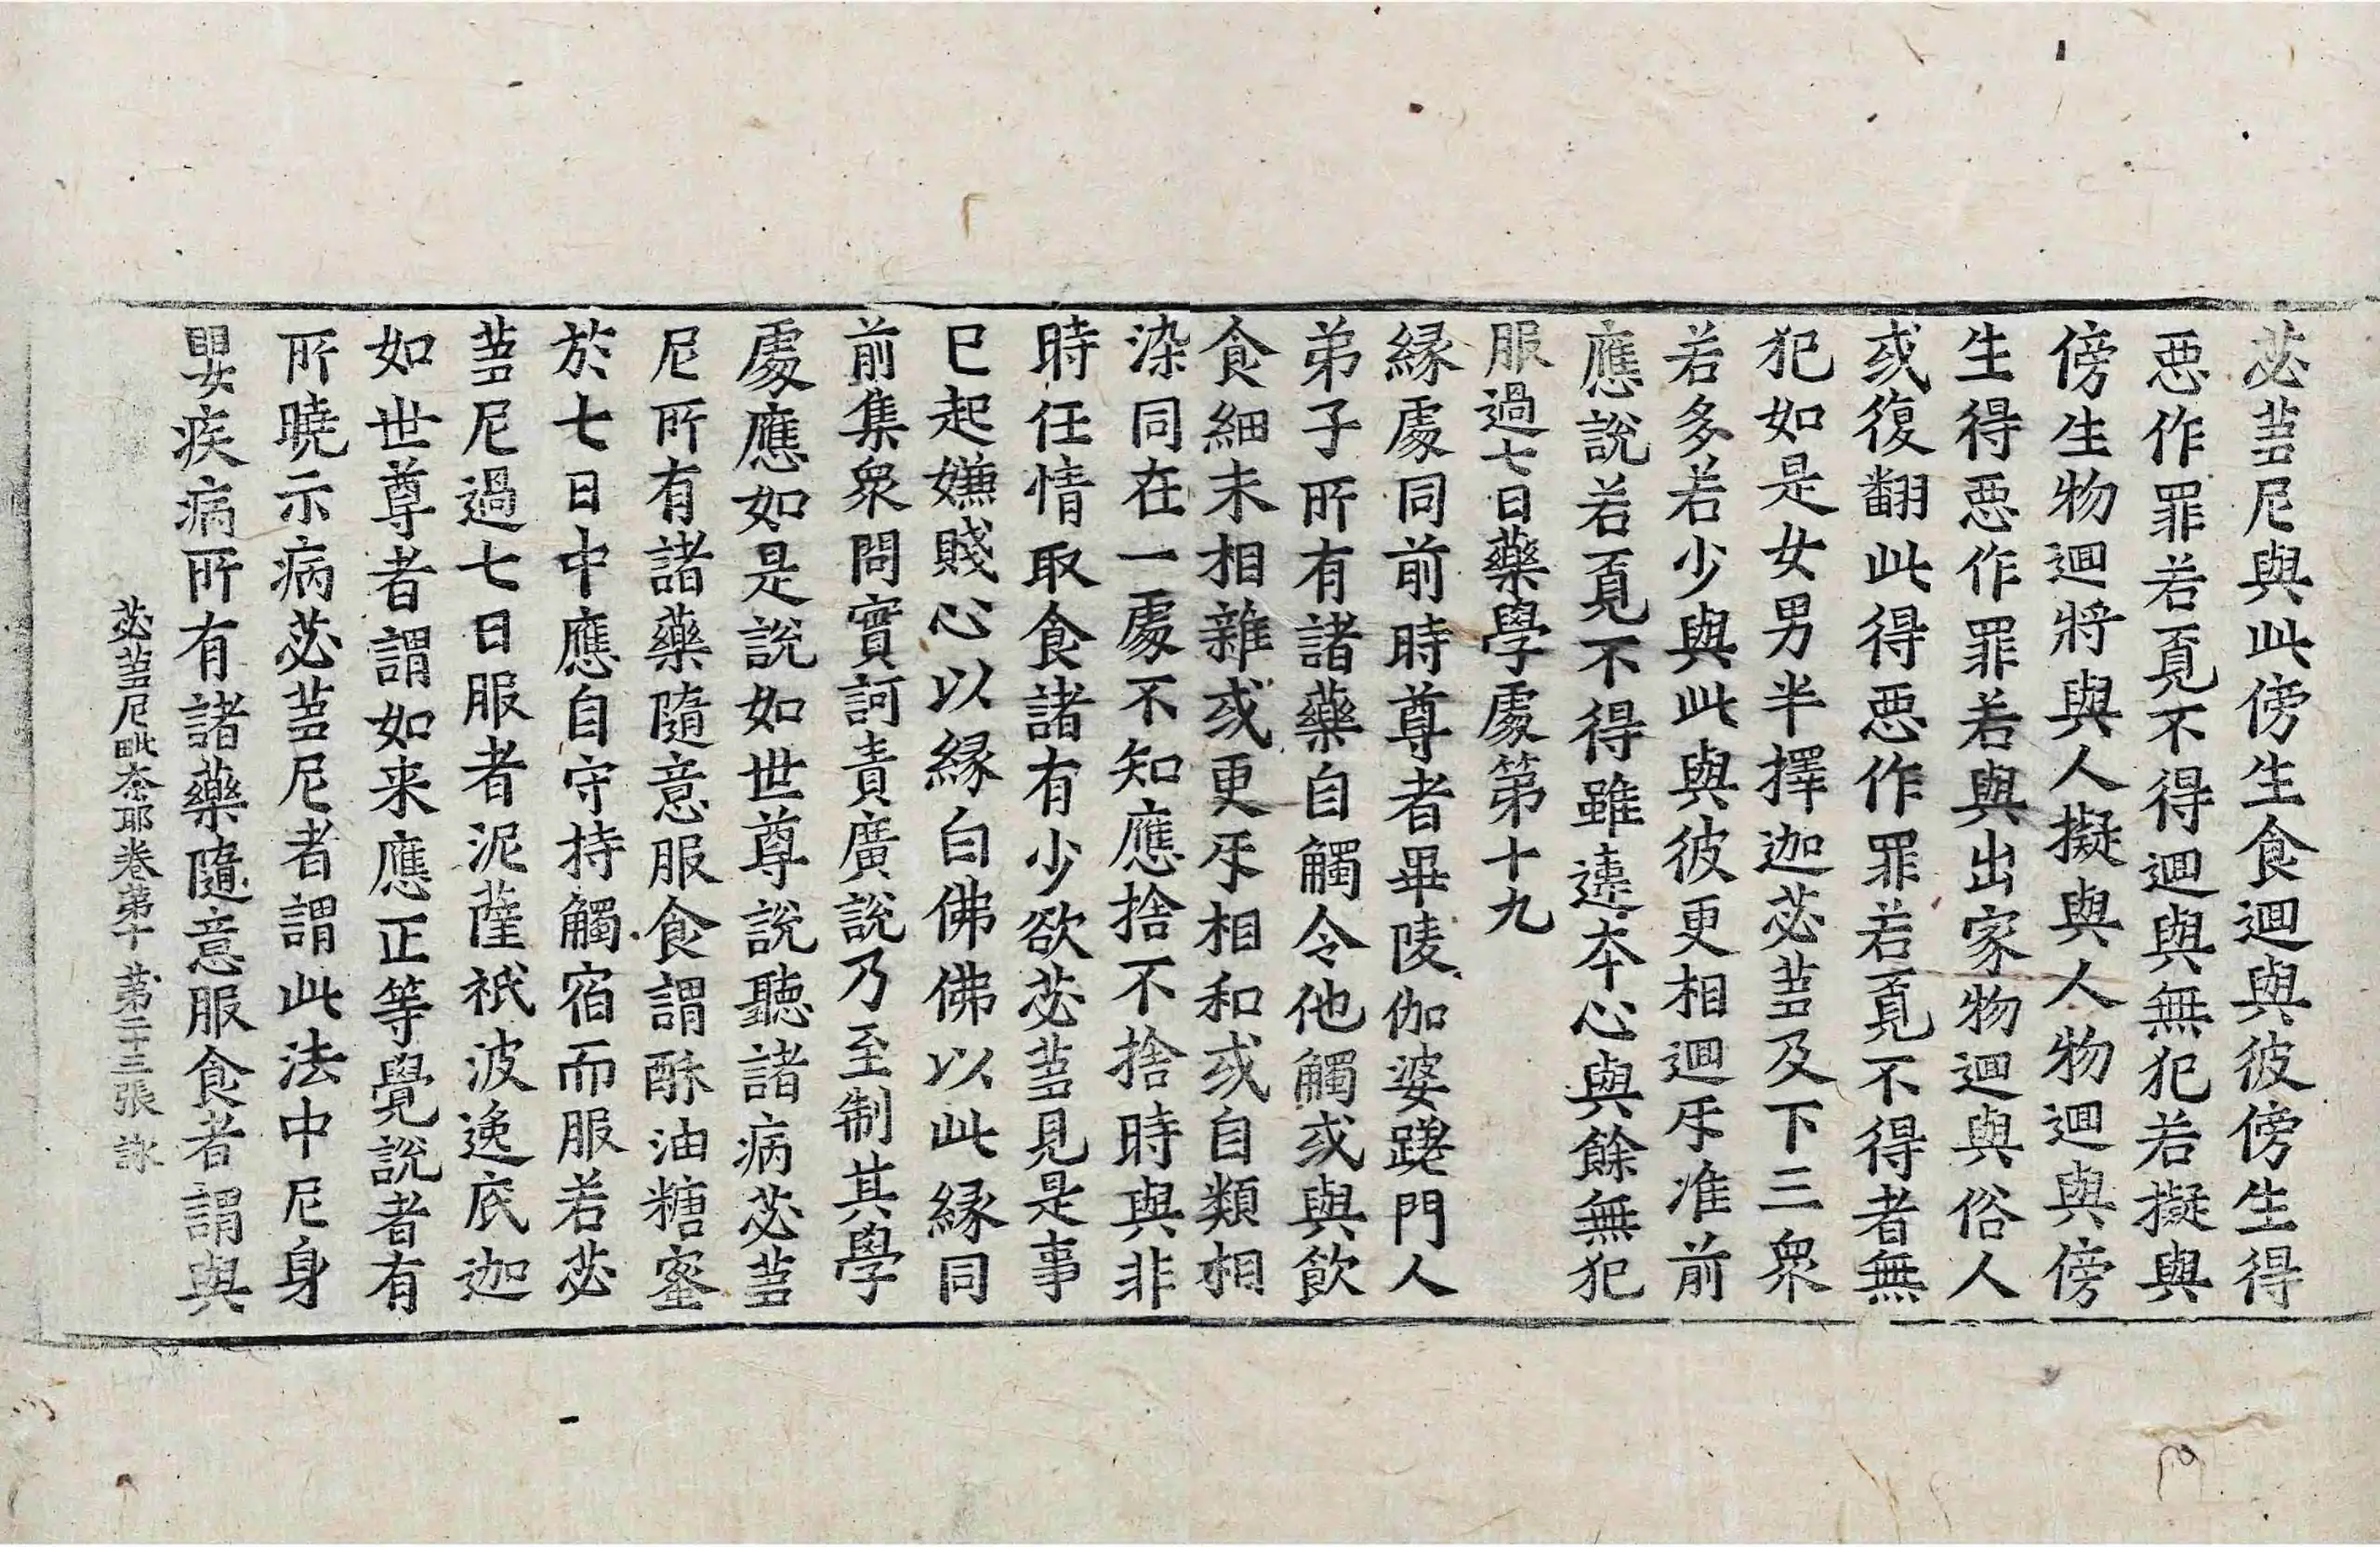 苾蒭尼與此傍生食迴與彼傍生得
惡作罪若覓不得迴與無犯若擬與
傍生物迴將與人擬與人物迴與傍
生得惡作罪若與出家物迴與俗人
或復翻此得惡作罪若覓不得者無
犯如是女男半擇迦苾蒭及下三衆
若多若少與此與彼更相迴㸦准前
應說若覓不得雖違本心與餘無犯
服過七日藥學處第十九
緣處同前時尊者畢陵伽婆蹉門人
弟子所有諸藥自觸令他觸或與飲
食細末相雜或更㸦相和或自類相
染同在一處不知應捨不捨時與非
時任情取食諸有少欲苾蒭見是事
已起嫌賤心以緣白佛佛以此緣同
前集衆問實訶責廣說乃至制其學
處應如是說如世尊說聽諸病苾蒭
尼所有諸藥隨意服食謂酥油糖蜜
於七日中應自守持觸宿而服若苾
蒭尼過七日服者泥薩祇波逸底迦
如世尊者謂如来應正等覺說者有
所曉示病苾蒭尼者謂此法中尼身
嬰疾病所有諸藥隨意服食者謂與
苾蒭尼毗奈耶卷第十 第二十三張 詠